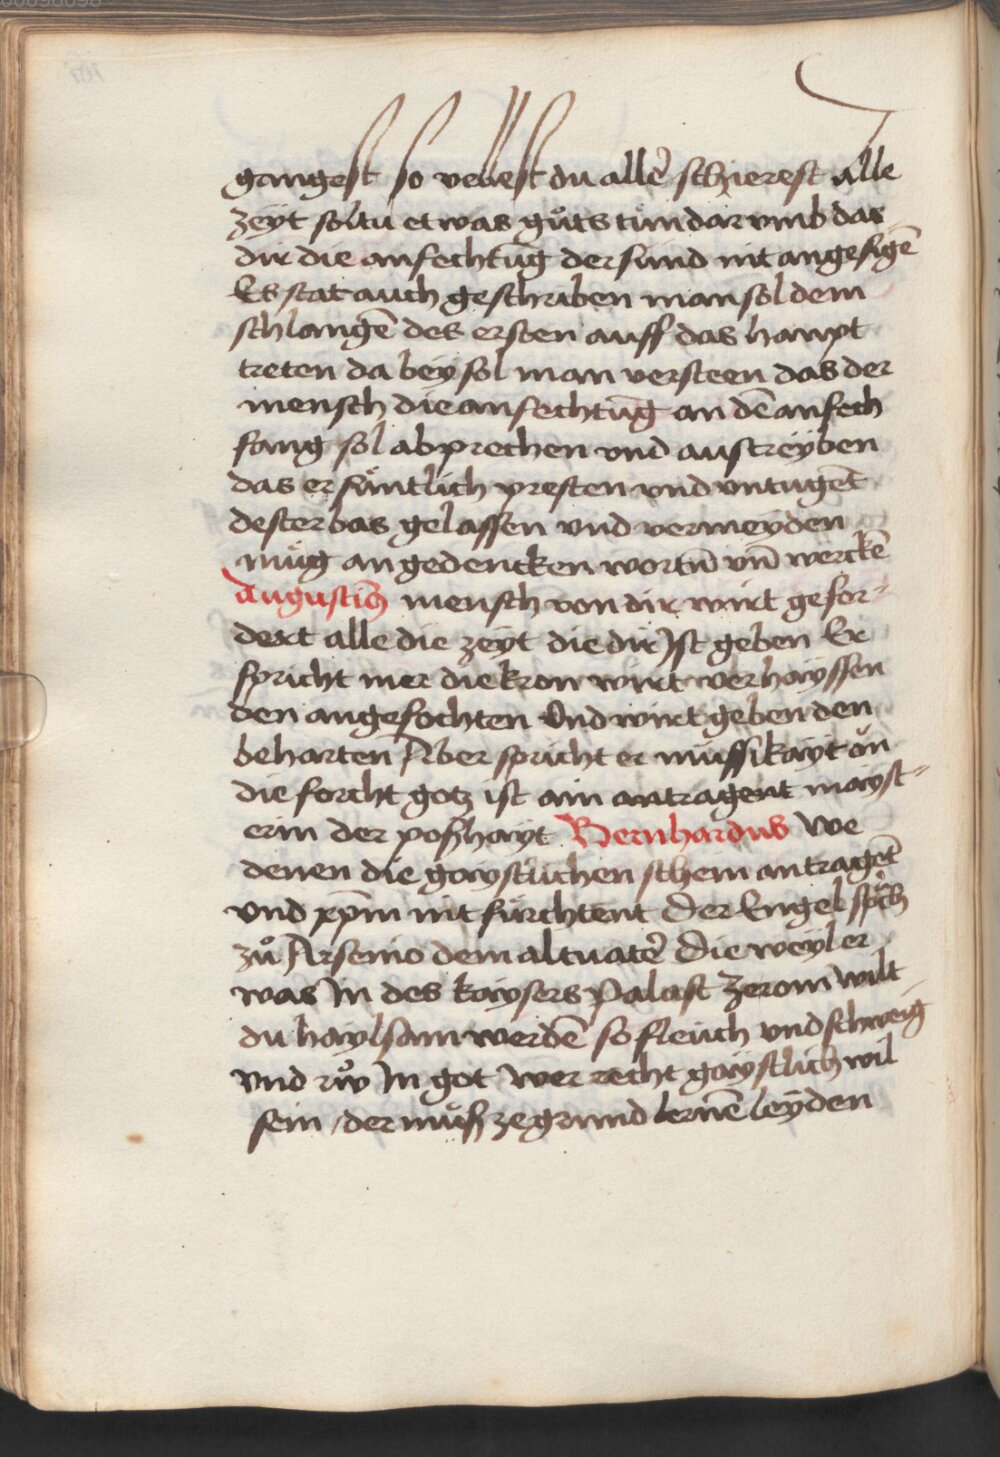 gangest so velest du allē schierest alle
zeyt soltu etwas gůts tun dar vmb das
dir die anfechtūg der sund nit angesigē
Es stat auch geschriben man sol dem
schlangē des ersten auff das haupt
treten da bey sol man versteen das der
mensch die anfechtūg an dē anfech
fang sol abprechen vnd austreyben
das er sämtlich presten vnd vntugēt
dester bas gelassen vnd vermeyden
můg an gedencken wortn̄ vn̄ werckē
Augustin9 mensch von dir wirt gefor-
dert alle die zeyt die dir Ist geben Er
spricht mer die kron wirt verhayssen
den angefochten Vnd wirt geben den
beharten Aber spricht er müssikayt on
die forcht gotz ist ain antragent mayst-
erin der poßhayt Bernhardus We
denen die gaystlichen schein antragēt
vnd xp̄m nit fürchtent Der Engel sp̄ch
zů Arsenio dem altuatē Die weyl er
was In des kaysers Palast ze rom Wilt
du haylsam werdē so fleuch vnd schweig
vnd rův In got Wer recht gaystlich wil
sein / der můß ze grund lernē leyden